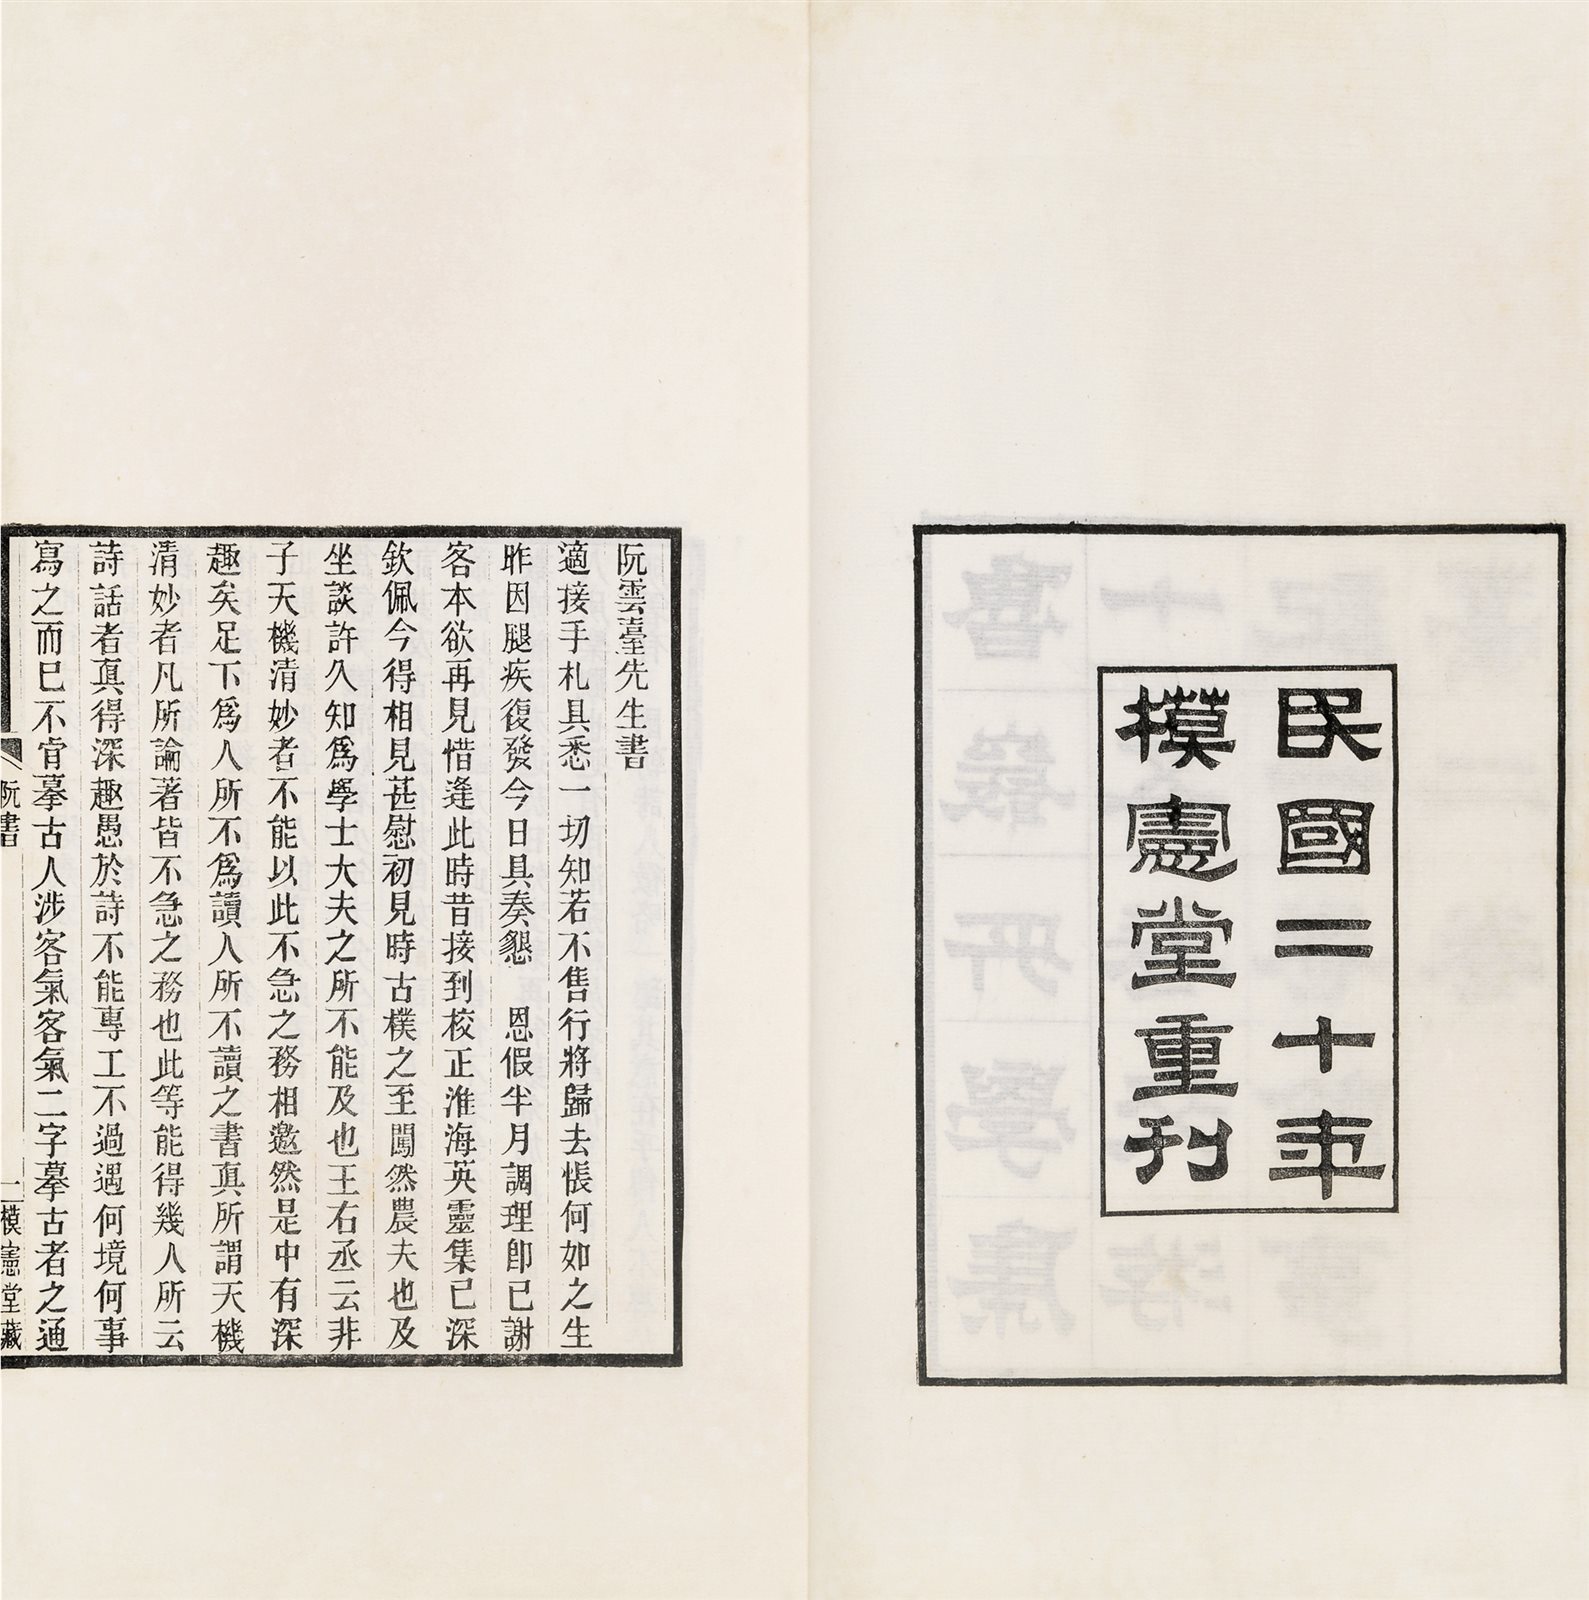 民國二十年
模憲堂重刊
阮雲臺先生書
適接手札具悉一切知若不售行將歸去悵何如之生
昨因腿疾復發今日具奏懇　恩假半月調理卽已謝
客本欲再見惜逢此時昔接到校正淮海英靈集已深
欽佩今得相見甚慰初見時古樸之至闖然農夫也及
坐談許久知爲學士大夫之所不能及也王右丞云非
子天機清妙者不能以此不急之務相邀然是中有深
趣矣足下爲人所不爲讀人所不讀之書眞所謂天機
清妙者凡所論著皆不急之務也此等能得幾人所云
詩話者眞得深趣愚於詩不能專工不過遇何境何事
寫之而已不肯摹古人涉客氣客氣二字摹古者之通
阮書
一
模憲堂藏